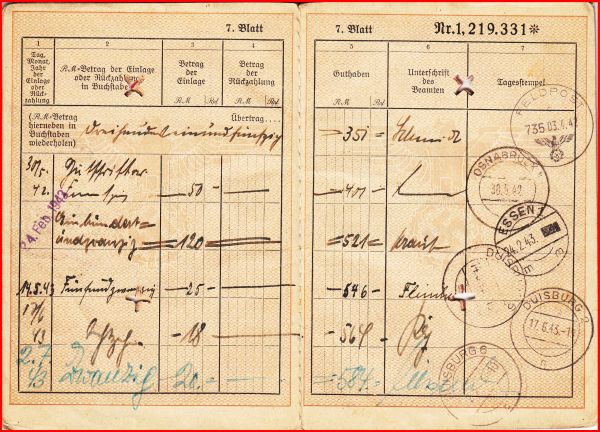 7. Blatt
1
2
3
4
Tag, Monat, Jahr der Einlage oder Rückzahlung
RM-Betrag der Einlage oder Rückzahlung in Buchstaben
Betrag der Einlage
RM Rpf
Betrag der Rückzahlung
RM Rpf
(RM-Betrag hierneben in Buchstaben wiederholen)
Dreihunderteinundfünfzig
Übertrag
30/5. 42. Gutschrift Fünfzig — 50 —
24. Feb. 1943
Einhundertundzwanzig = 120 =
14.5.43 Fünfundzwanzig — 25 —
17/6 43 Achtzehn — 18 —
2.7 43 Zwanzig 20.-
7. Blatt
Nr. 1,219.331*
5
6
7
Guthaben
RM Rpf
Unterschrift des Beamten
Tagesstempel
= 351 - Schmidt
FELDPOST
735 03.4.42
- 401 -
OSNABRÜCK
30.5.42
= 521 =
ESSEN 1
24.2.43.
- 546 -
DUISBURG
- 564 -
DUISBURG 2
17.6.43.
- 584.-
DUISBURG 6